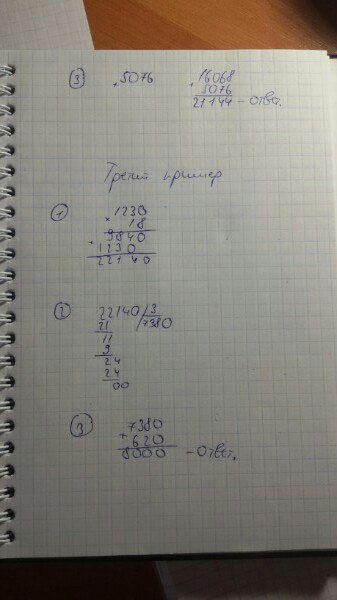 ③ +5076 16068
+ 5076
21144 - ответ.
Третий пример
① 1230
× 18
9840
+ 1230
22140
② 22140 | 3
21 | 7380
11
9
24
24
00
③ 7380
+ 620
8000 - ответ.